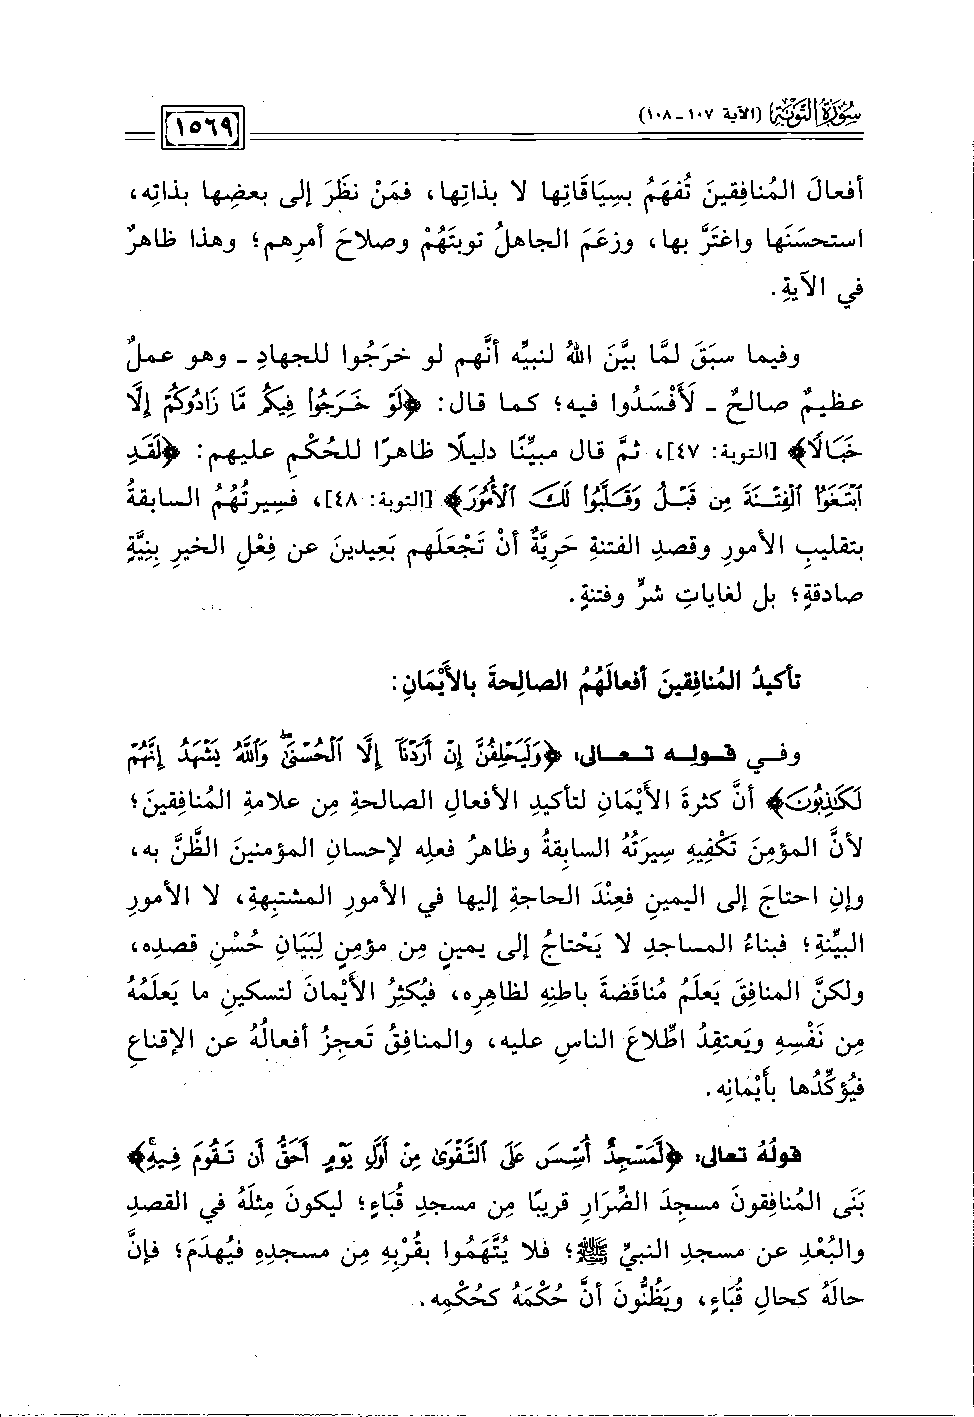 سُورَةُ التَّوْبَةِ (الآية ١٠٧ ـ ١٠٨)
١٥٦٩
أفعالَ المُنافِقينَ تُفهَمُ بسِيَاقَاتِها لا بذاتِها، فمَنْ نظَرَ إلى بعضِها بذاتِه،
استحسَنَها واغتَرَّ بها، وزعَمَ الجاهلُ توبتَهُمْ وصلاحَ أمرِهم؛ وهذا ظاهرٌ
في الآيةِ.
وفيما سبَقَ لمَّا بيَّنَ اللهُ لنبيِّه أنَّهم لو خرَجُوا للجهادِ ـ وهو عملٌ
عظيمٌ صالحٌ ـ لَأَفْسَدُوا فيه؛ كما قال: ﴿لَوْ خَرَجُوا۟ فِيكُم مَّا زَادُوكُمْ إِلَّا
خَبَالًا﴾ [التوبة: ٤٧]، ثمَّ قال مبيِّنًا دليلًا ظاهرًا للحُكْمِ عليهم: ﴿لَقَدِ
ٱبْتَغَوُا۟ ٱلْفِتْنَةَ مِن قَبْلُ وَقَلَّبُوا۟ لَكَ ٱلْأُمُورَ﴾ [التوبة: ٤٨]، فسِيرتُهُمُ السابقةُ
بتقليبِ الأمورِ وقصدِ الفتنةِ حَرِيَّةٌ أنْ تَجْعَلَهم بَعِيدينَ عن فِعْلِ الخيرِ بِنِيَّةٍ
صادقةٍ؛ بل لغاياتِ شرٍّ وفتنةٍ.
تأكيدُ المُنافِقينَ أفعالَهُمُ الصالِحةَ بالأَيْمَانِ:
وفي قولِه تعالى: ﴿وَلَيَحْلِفُنَّ إِنْ أَرَدْنَآ إِلَّا ٱلْحُسْنَىٰ ۖ وَٱللَّهُ يَشْهَدُ إِنَّهُمْ
لَكَـٰذِبُونَ﴾ أنَّ كثرةَ الأَيْمَانِ لتأكيدِ الأفعالِ الصالحةِ مِن علامةِ المُنافِقينَ؛
لأنَّ المؤمِنَ تَكْفِيهِ سِيرَتُهُ السابِقةُ وظاهرُ فعلِه لإحسانِ المؤمنينَ الظَّنَّ به،
وإنِ احتاجَ إلى اليمينِ فعِنْدَ الحاجةِ إليها في الأمورِ المشتبِهةِ، لا الأمورِ
البيِّنةِ؛ فبناءُ المساجدِ لا يَحْتاجُ إلى يمينٍ مِن مؤمنٍ لِبَيَانِ حُسْنِ قصدِه،
ولكنَّ المنافِقَ يَعلَمُ مُناقَضةَ باطنِهِ لظاهرِه، فيُكثِرُ الأَيْمانَ لتسكينِ ما يَعلَمُهُ
مِن نَفْسِهِ ويَعتقِدُ اطِّلاعَ الناسِ عليه، والمنافِقُ تَعجِزُ أفعالُهُ عن الإقناعِ
فيُؤكِّدُها بأَيْمَانِه.
قولُهُ تعالى: ﴿لَّمَسْجِدٌ أُسِّسَ عَلَى ٱلتَّقْوَىٰ مِنْ أَوَّلِ يَوْمٍ أَحَقُّ أَن تَقُومَ فِيهِ ۚ﴾
بَنَى المُنافِقونَ مسجِدَ الضِّرَارِ قريبًا مِن مسجدِ قُبَاءٍ؛ ليكونَ مِثلَهُ في القصدِ
والبُعْدِ عن مسجدِ النبيِّ ﷺ؛ فلا يُتَّهَمُوا بقُرْبِهِ مِن مسجدِهِ فيُهدَمَ؛ فإنَّ
حالَهُ كحالِ قُبَاءٍ، ويَظُنُّونَ أنَّ حُكْمَهُ كحُكْمِه.